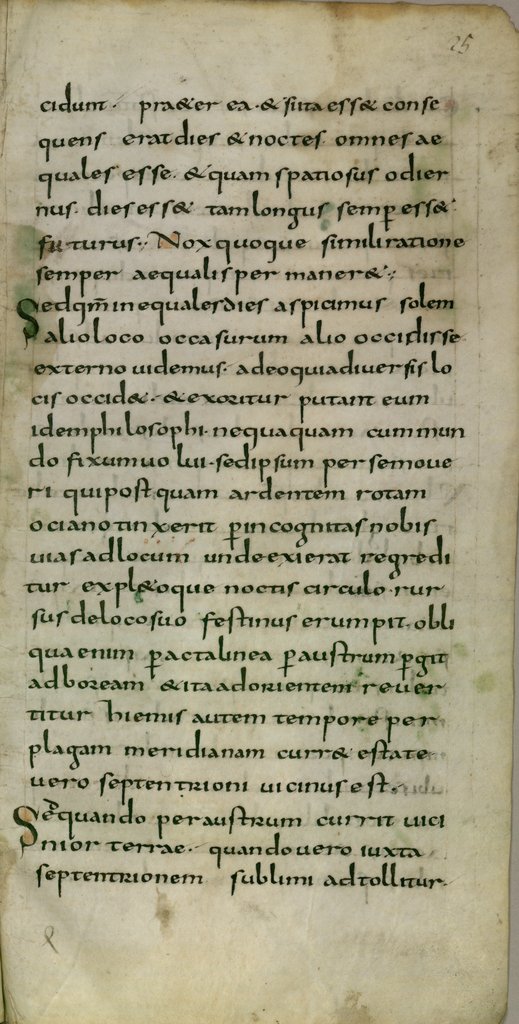 25
cidunt· praeter ea· & si ita ess& conse
quens erat dies & noctes omnes ae
quales esse· & quam spatiosus odier
nus dies ess& tam longus semp ess&
futurus·, Nox quoque simili ratione
semper aequalis per maner&·,
Sed qm inequales dies aspicimus solem
alio loco occasurum alio occidisse
externo uidemus· adeo quia diuersis lo
cis occid&· & exoritur putant eum
idem philosophi· nequaquam cum mun
do fixum uolui· sed ipsum per se moue
ri qui postquam ardentem rotam
ociano tinxerit p incognitas nobis
uias ad locum unde exierat regredi
tur expl&oque noctis circulo rur
sus de loco suo festinus erumpit· obli
qua enim p acta linea p austrum pgit
ad boream & ita ad orientem reuer
titur hiemis autem tempore per
plagam meridianam curr& estate
uero septentrioni uicinus est·,
Sed quando per austrum currit uici
nior terrae· quando uero iuxta
septentrionem sublimi adtollitur·